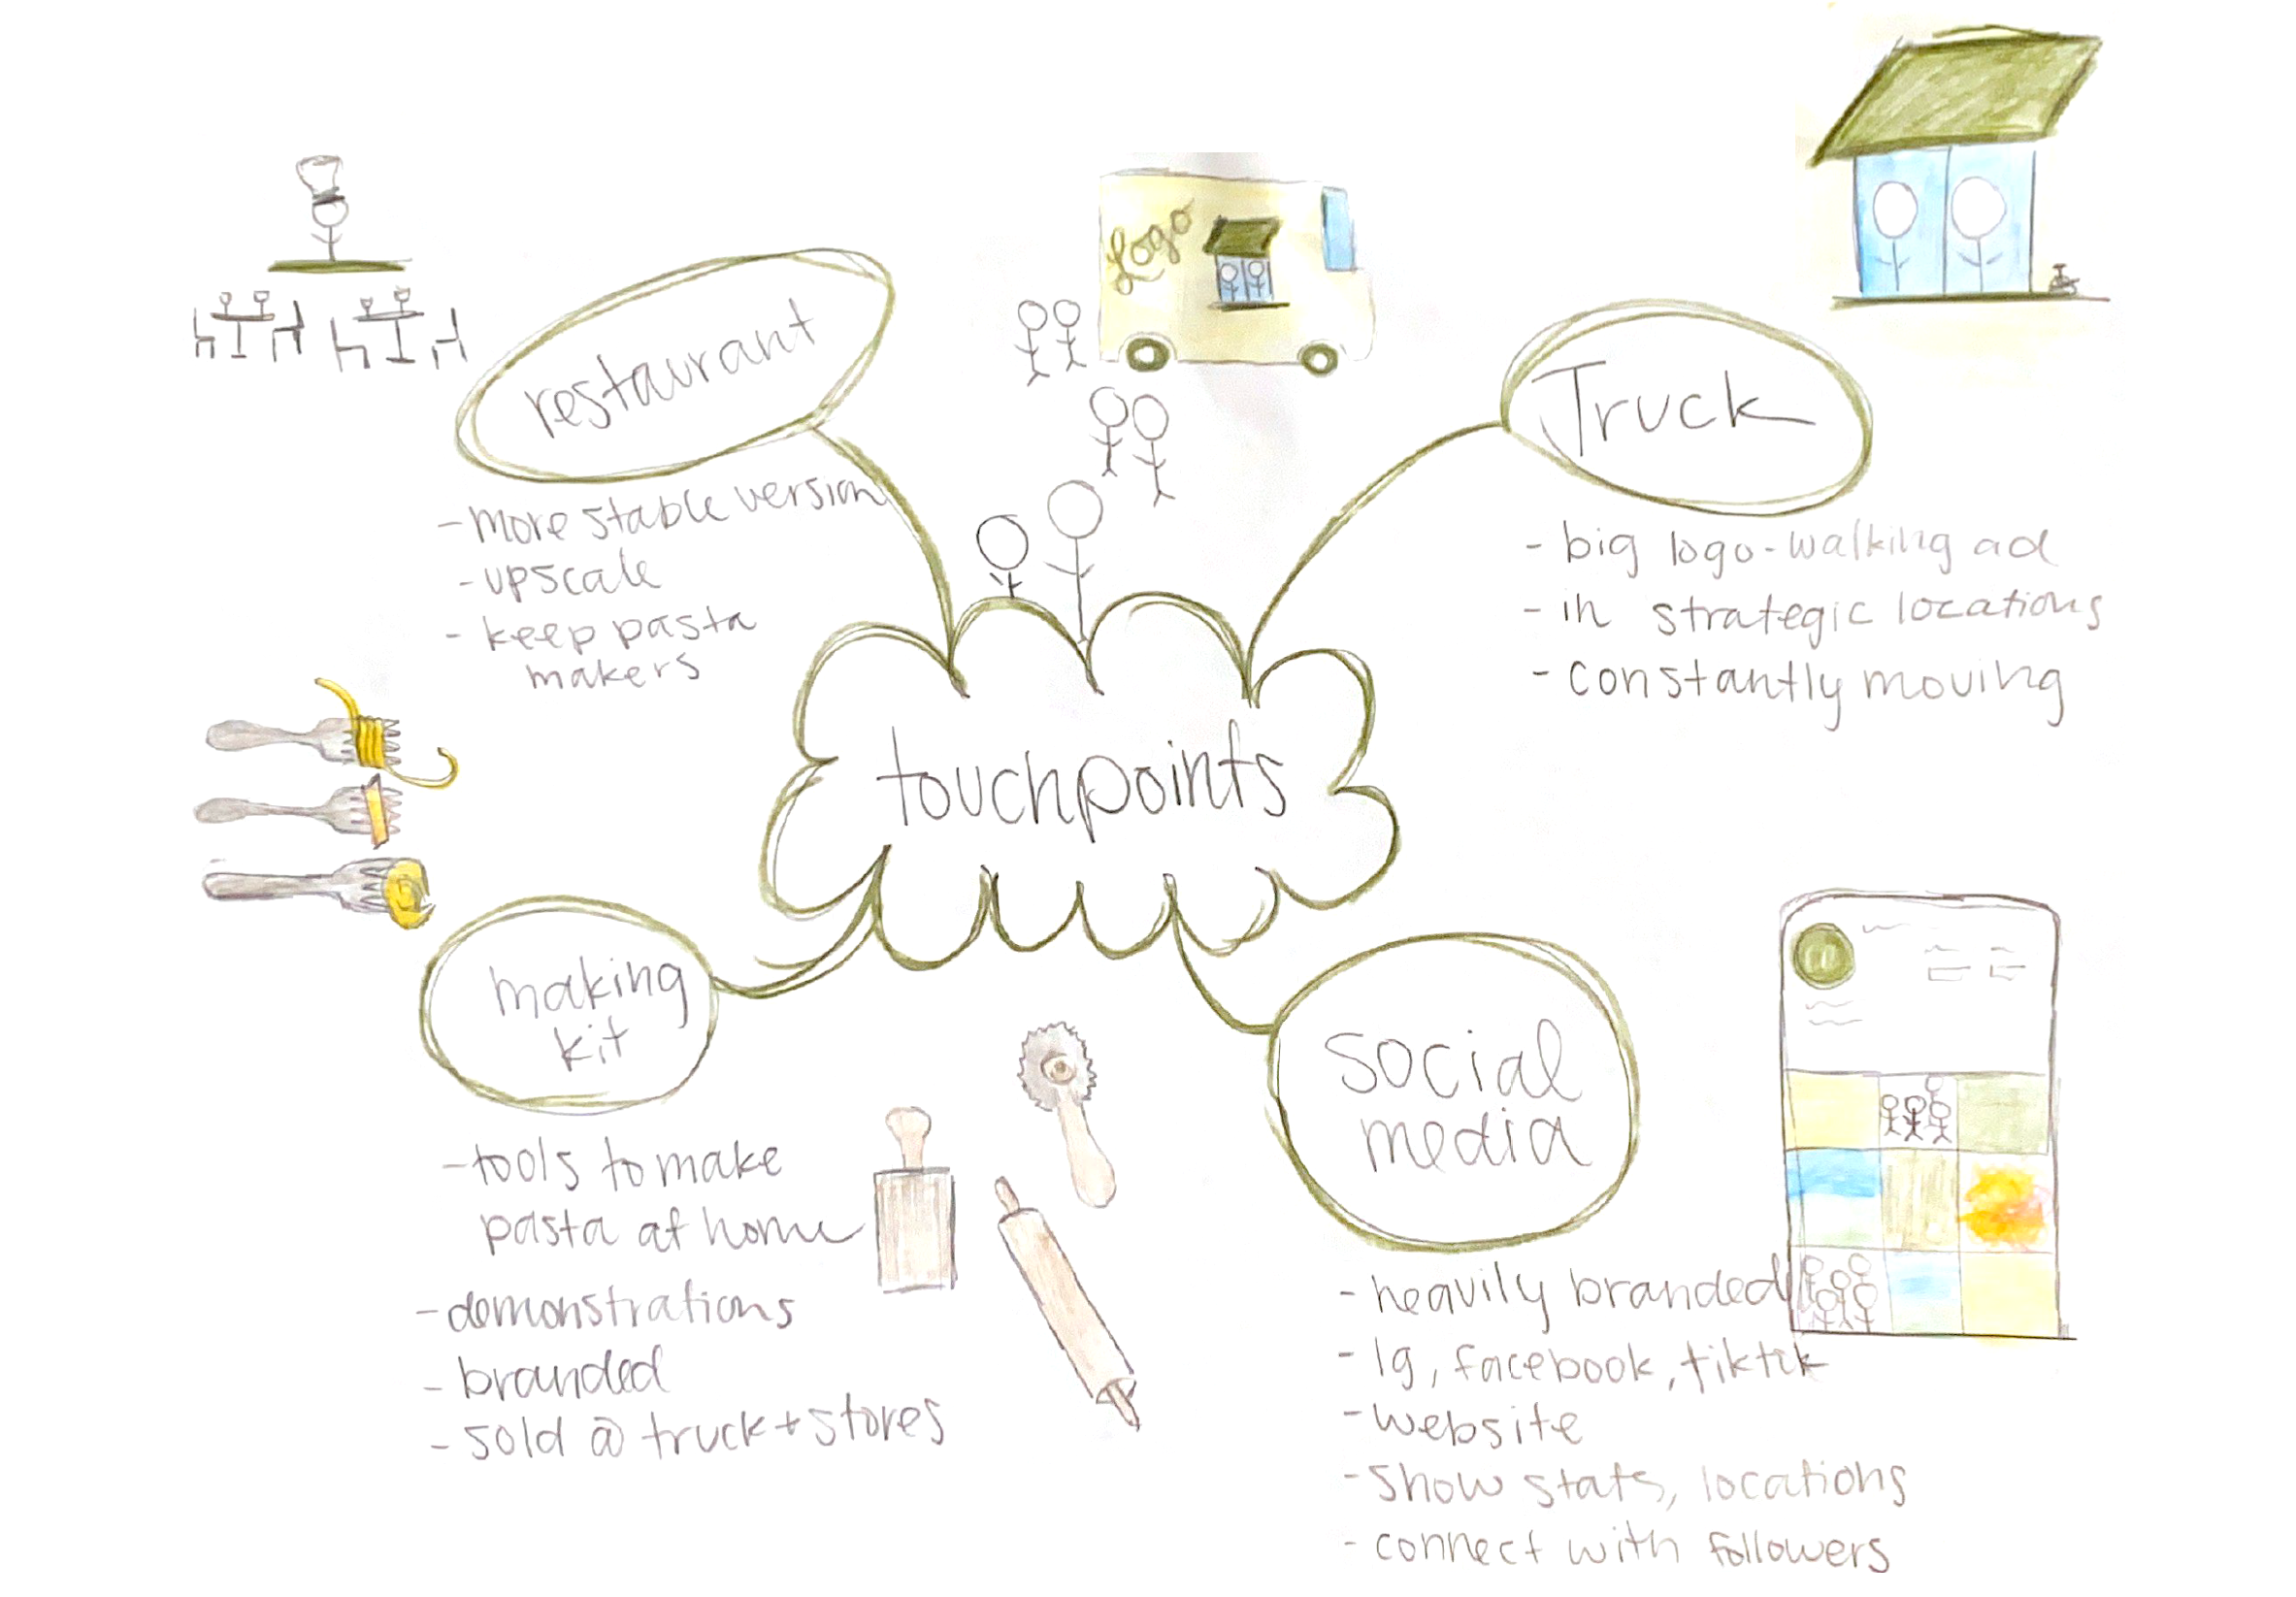 Logo
restaurant
- more stable version
- upscale
- keep pasta
makers
Truck
- big logo - walking ad
- in strategic locations
- constantly moving
touchpoints
making
kit
- tools to make
pasta at home
- demonstrations
- branded
- sold @ truck + stores
social
media
- heavily branded
- Ig, facebook, tiktok
- website
- show stats, locations
- connect with followers